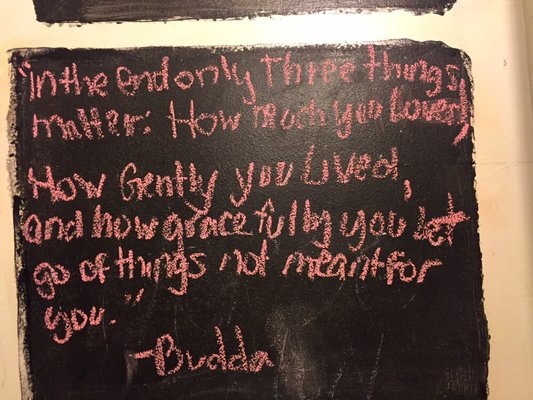 "In the End only Three things
matter: How much you Loved,
How Gently you Lived,
and how gracefully you Let
go of things not meant for
you."
-Budda